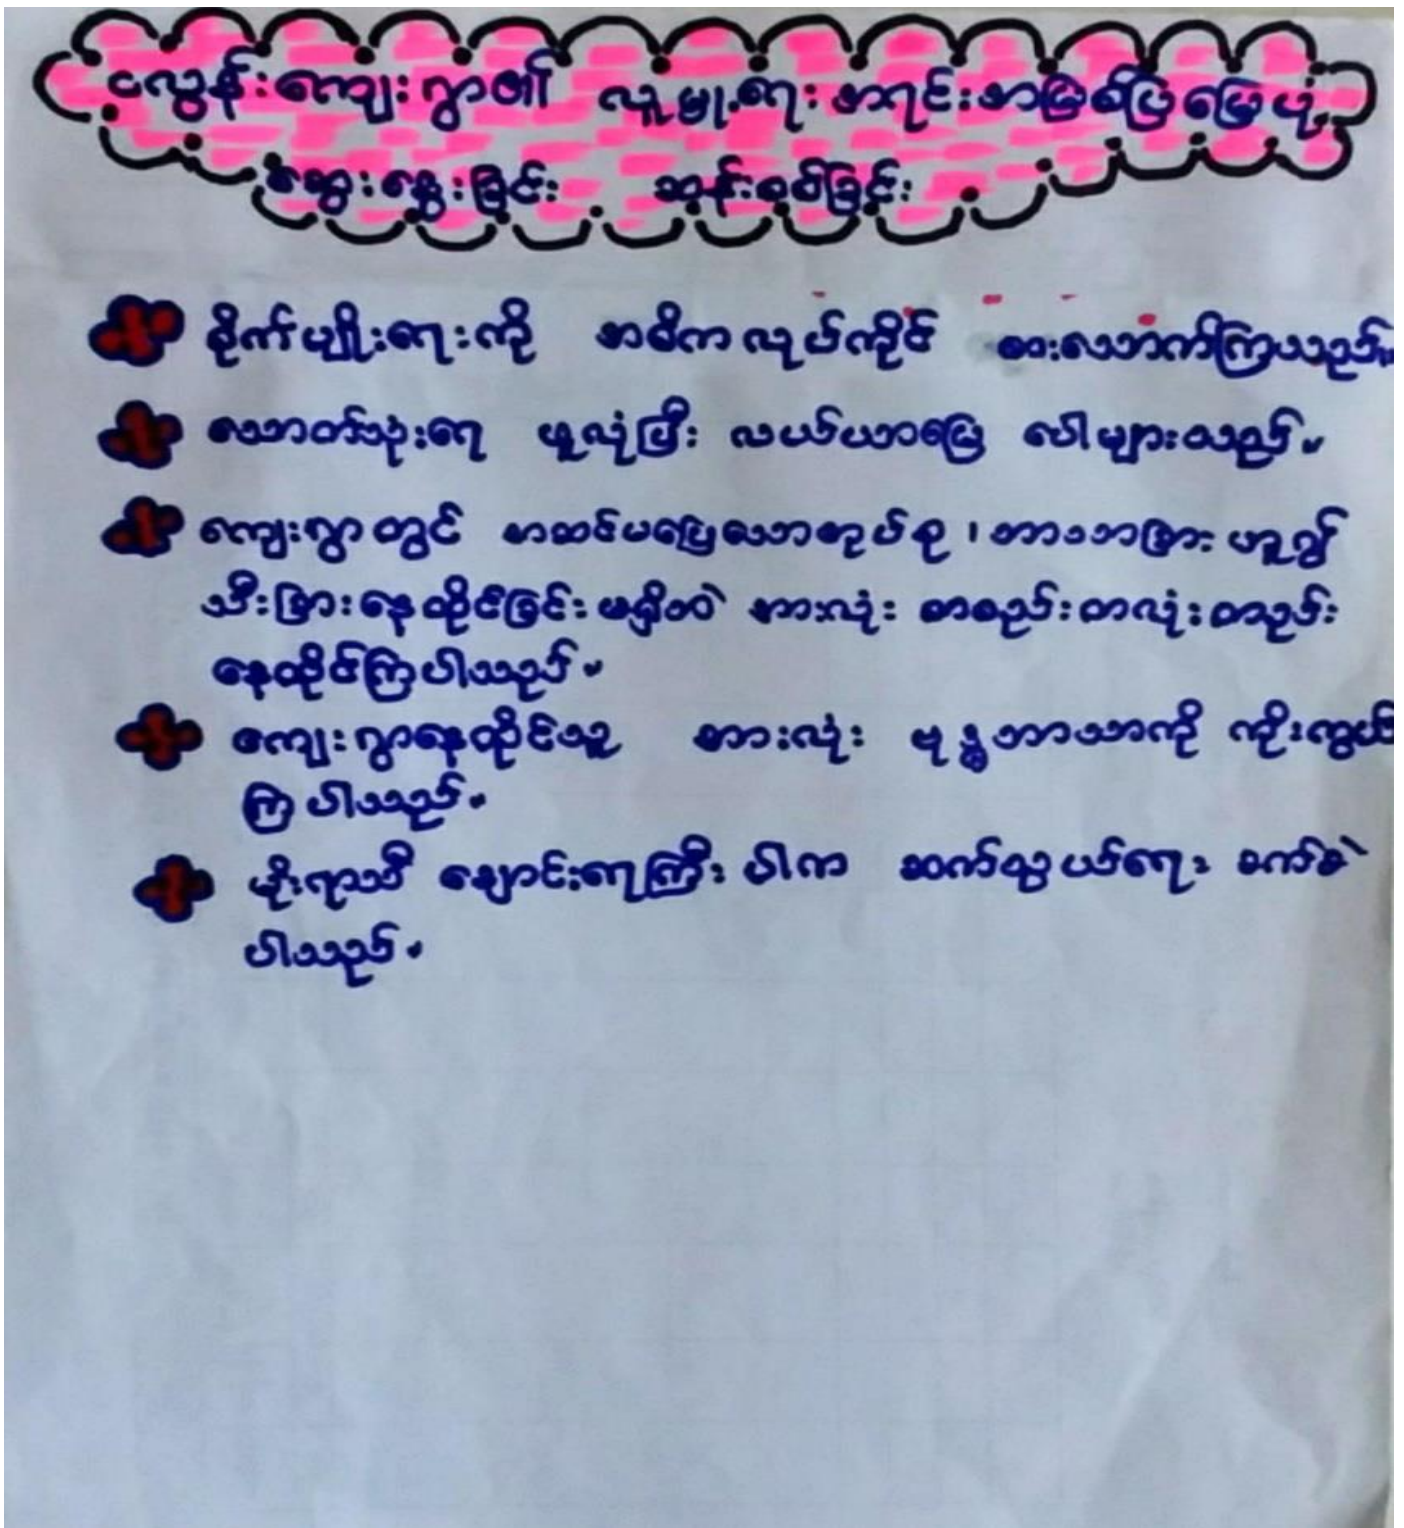 ငလွန်းကျေးရွာ၏ လူမှု့ရေးအရင်းအမြစ်ပြမြေပုံ
ဆွေးနွေးခြင်း ဆန်းစစ်ခြင်း
စိုက်ပျိုးရေးကို အဓိကလုပ်ကိုင် စားသောက်ကြသည်။
သောက်သုံးရေ ဖူလုံပြီး လယ်ယာမြေ ပေါများသည်။
ကျေးရွာတွင် အဆင်မပြေသောအုပ်စု ၊ ဘာသာခြား ဟူ၍
သီးခြားနေထိုင်ခြင်းမရှိဘဲ အားလုံး စာစည်းတလုံးတည်း
နေထိုင်ကြပါသည်။
ကျေးရွာနေထိုင်သူ အားလုံး ဗုဒ္ဓဘာသာကို ကိုးကွယ်
ကြပါသည်။
မိုးရာသီ ချောင်းရေကြီးပါက ဆက်သွယ်ရေး ခက်ခဲ
ပါသည်။